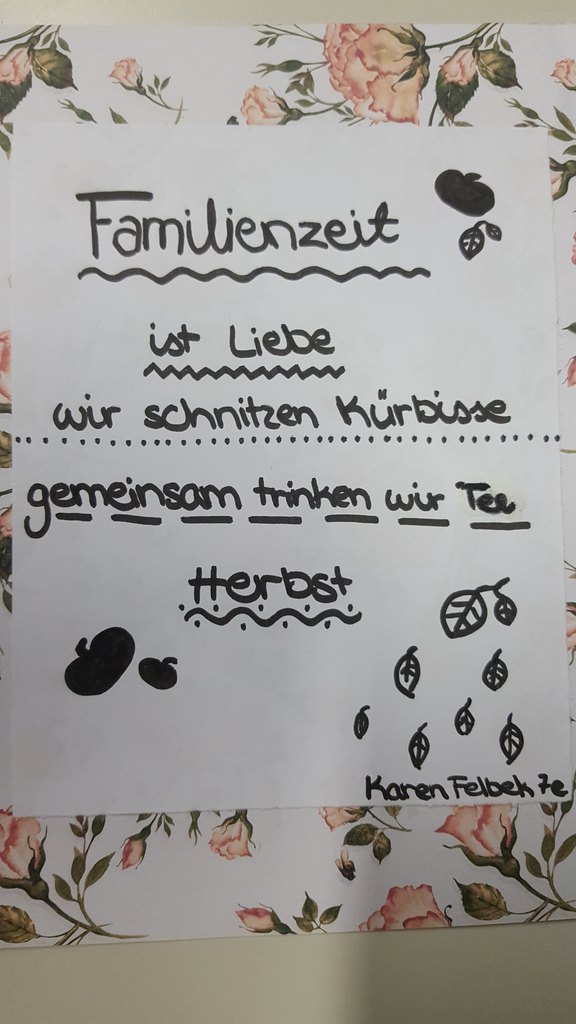 Familienzeit
ist Liebe
wir schnitzen Kürbisse
gemeinsam trinken wir Tee
Herbst
Karen Felbek 7e